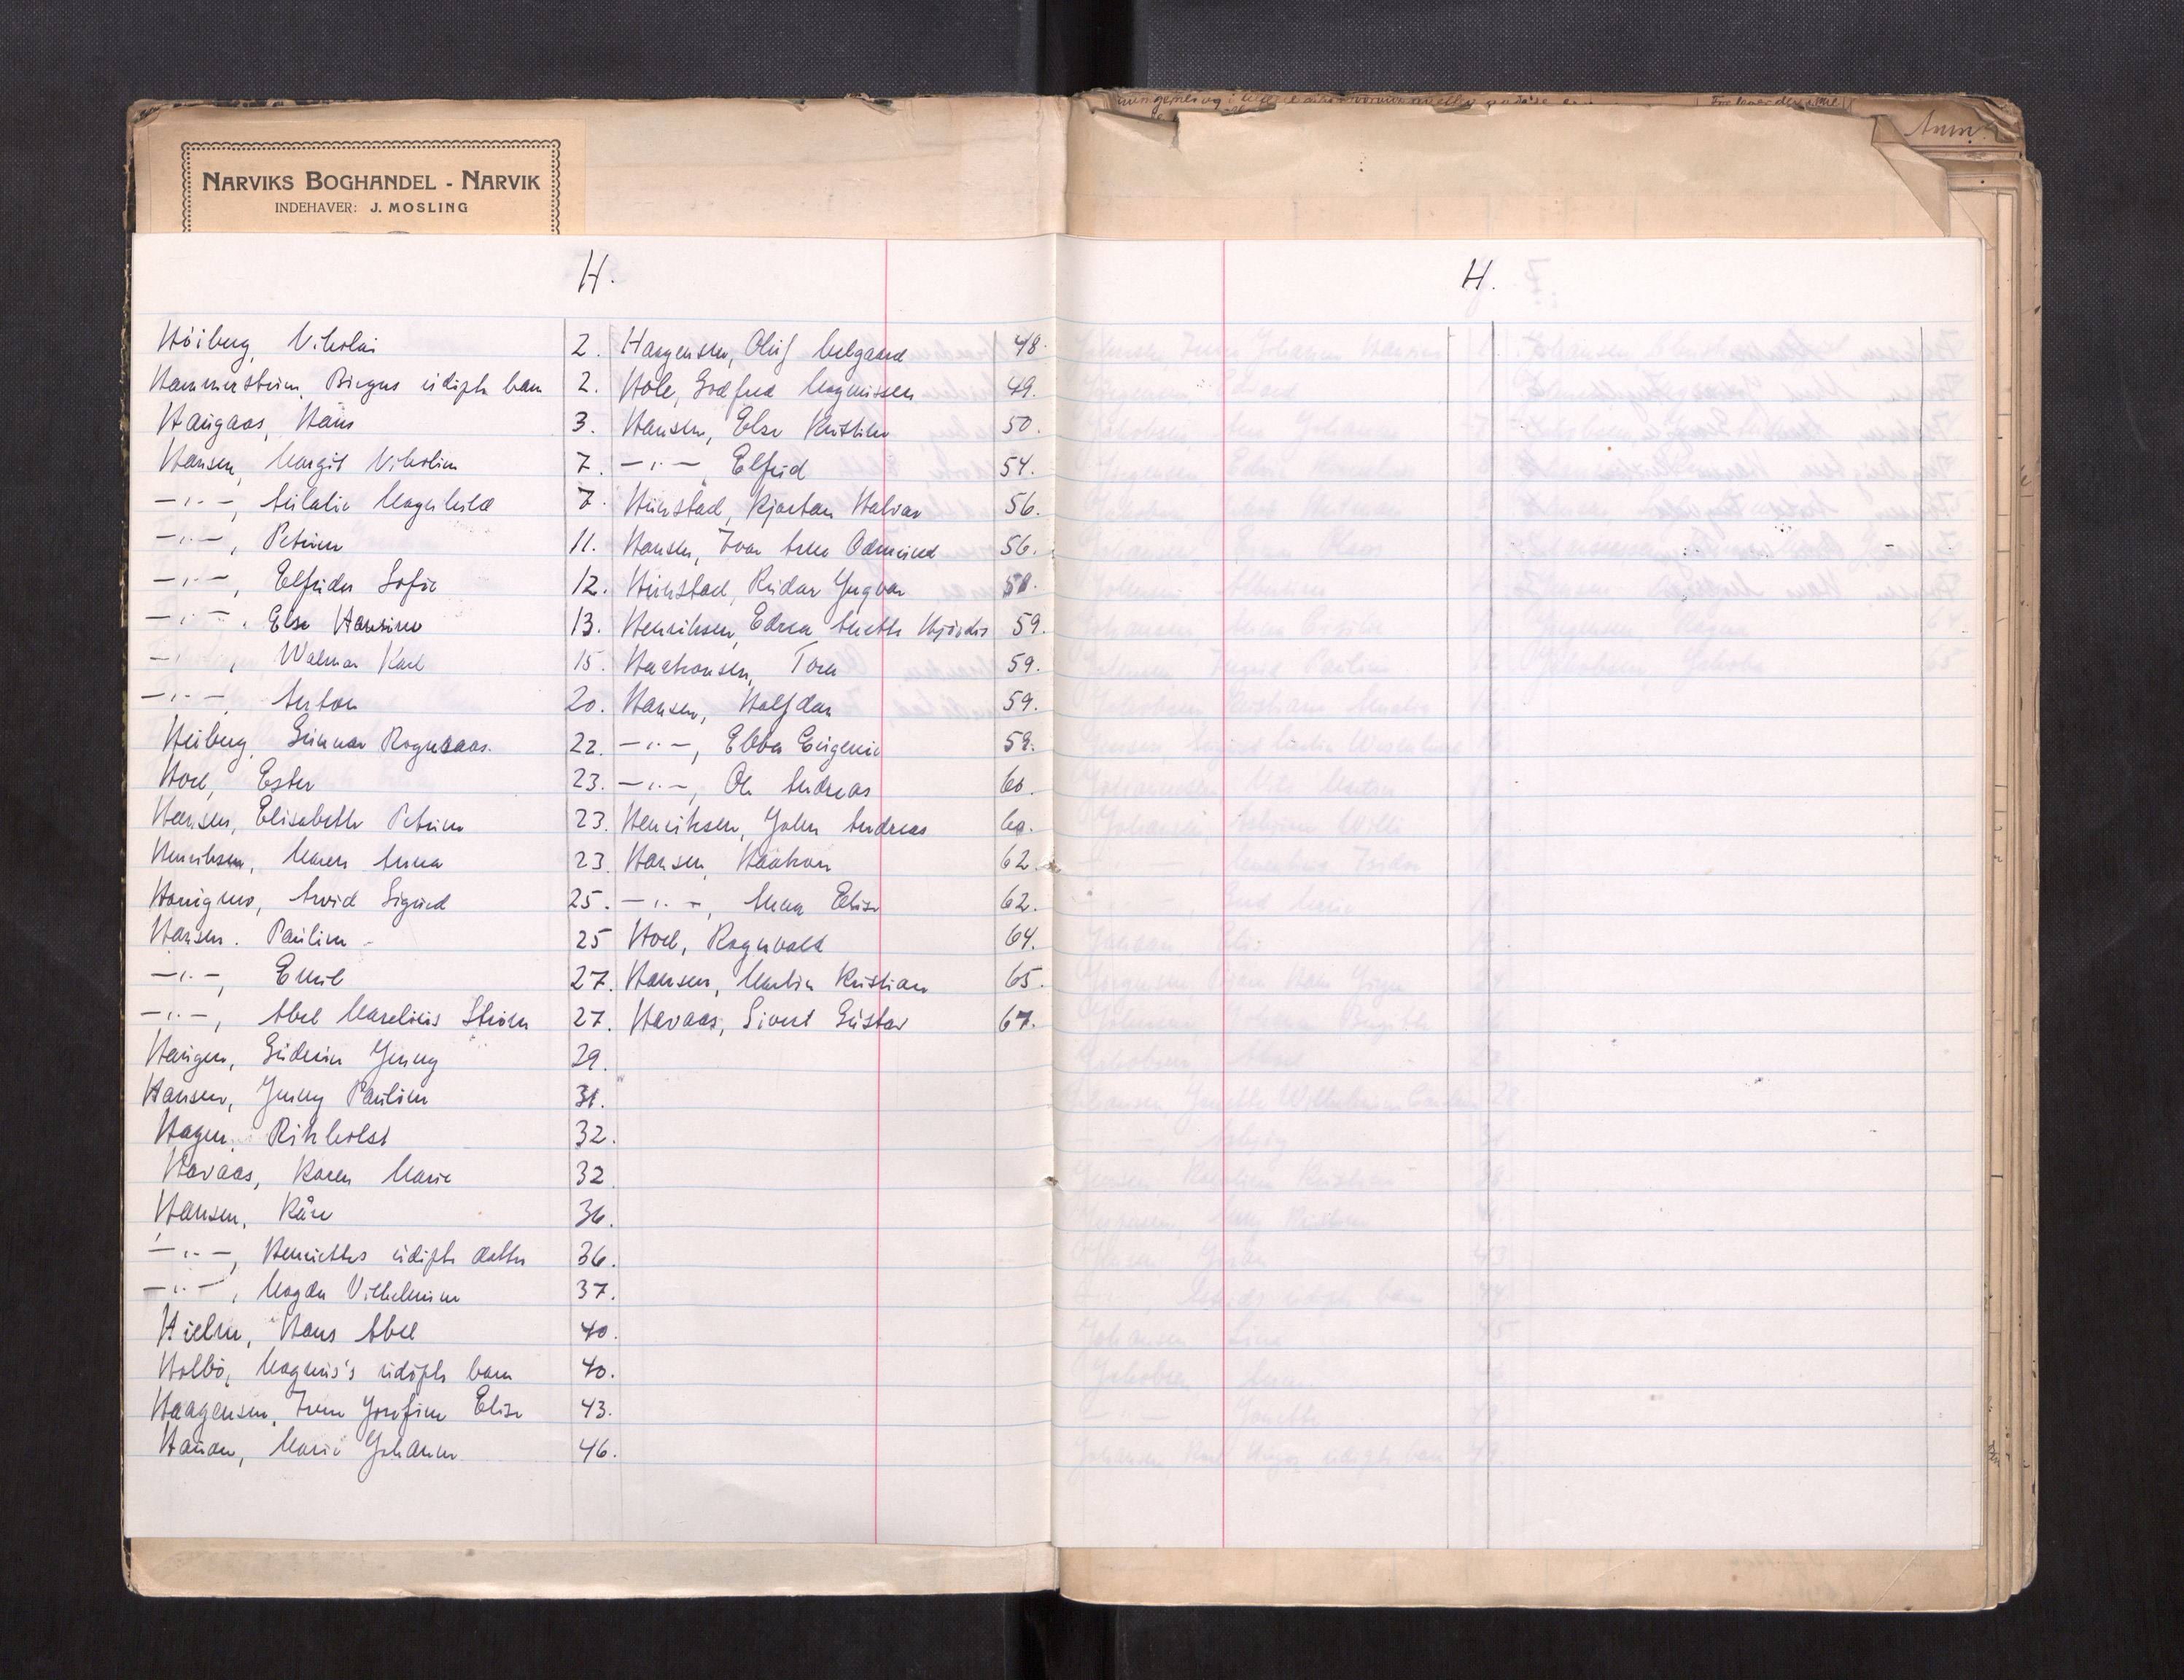 NARVIKS BOGHANDEL - NARVIK
INDEHAVER: J. MOSLING
Anm.
H.
Höiberg, Nikolai 2.
Hammerstrøm, Birgers udöpte barn 2.
Haugaas, Hans 3.
Hansen, Margit Nikoline 7.
—"—, Magnhild 7.
—"—, Petrine 11.
—"—, Elfrida Sofie 12.
—"—, Else Hansine 13.
—"—, Walmar Karl 15.
—"—, Anton 20.
Heiberg, Gunnar Rognaaas. 22.
Hoel, Ester 23.
Hansen, Elisabeth Petrine 23.
Henriksen, Maren Anna 23.
Haugmo, Arvid Sigurd 25.
Hansen. Pauline 25
—"—, Emil 27.
—"—, Abel Marelius Ström 27.
Haugen, Gudrun Jenny 29.
Hansen, Jenny Pauline 31.
Hagen, Rikholst 32.
Havaas, Karen Marie 32.
Hansen, Kåre 36.
—"—, Henriettes udöpte datter 36.
—"—, Magda Vilhelmine 37.
Hielm, Hans Abel 40.
Holbö, Magnus's udöpte barn 40.
Haagensen, Irene Josefine Elise 43.
Hauan, Marie Johanne 46.
Haagensen, Oluf Melgaard 48.
Hole, Godfred Magnussen 49.
Hansen, Else Kristine 50.
—"— Elfrid 54.
Hunstad, Kjartan Halvar 56.
Hansen, Ivar Arne Odmund 56.
Hunstad, Reidar Yngvar 58.
Henriksen, Edrea Anette Hjördis 59.
Haakonsen, Tora 59.
Hansen, Halfdan 59.
—"—, Ebba Eugenie 59.
—"—, Ole Andreas 60.
Henriksen, John Andreas 60.
Hansen, Haakon 62.
—"—, Anna Elise 62.
Hoel, Rognvald 64.
Hansen, Martin Kristian 65.
Havaas, Sivert Gustav 67.
H.